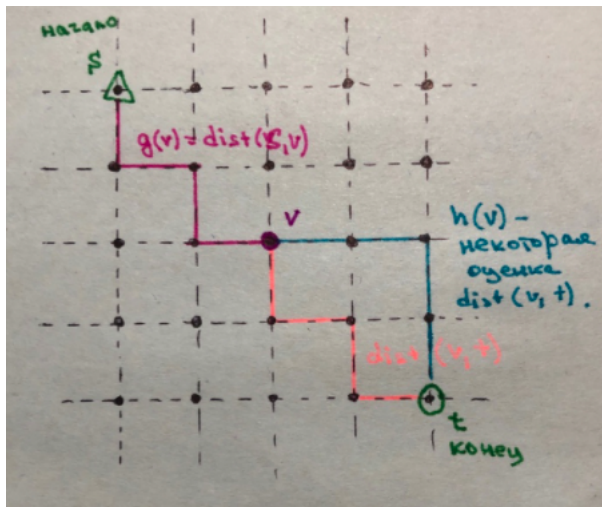 начало
S
g(v) = dist(S, v)
v
h(v) -
некоторая
оценка
dist(v, t).
dist (v, t)
t
конец